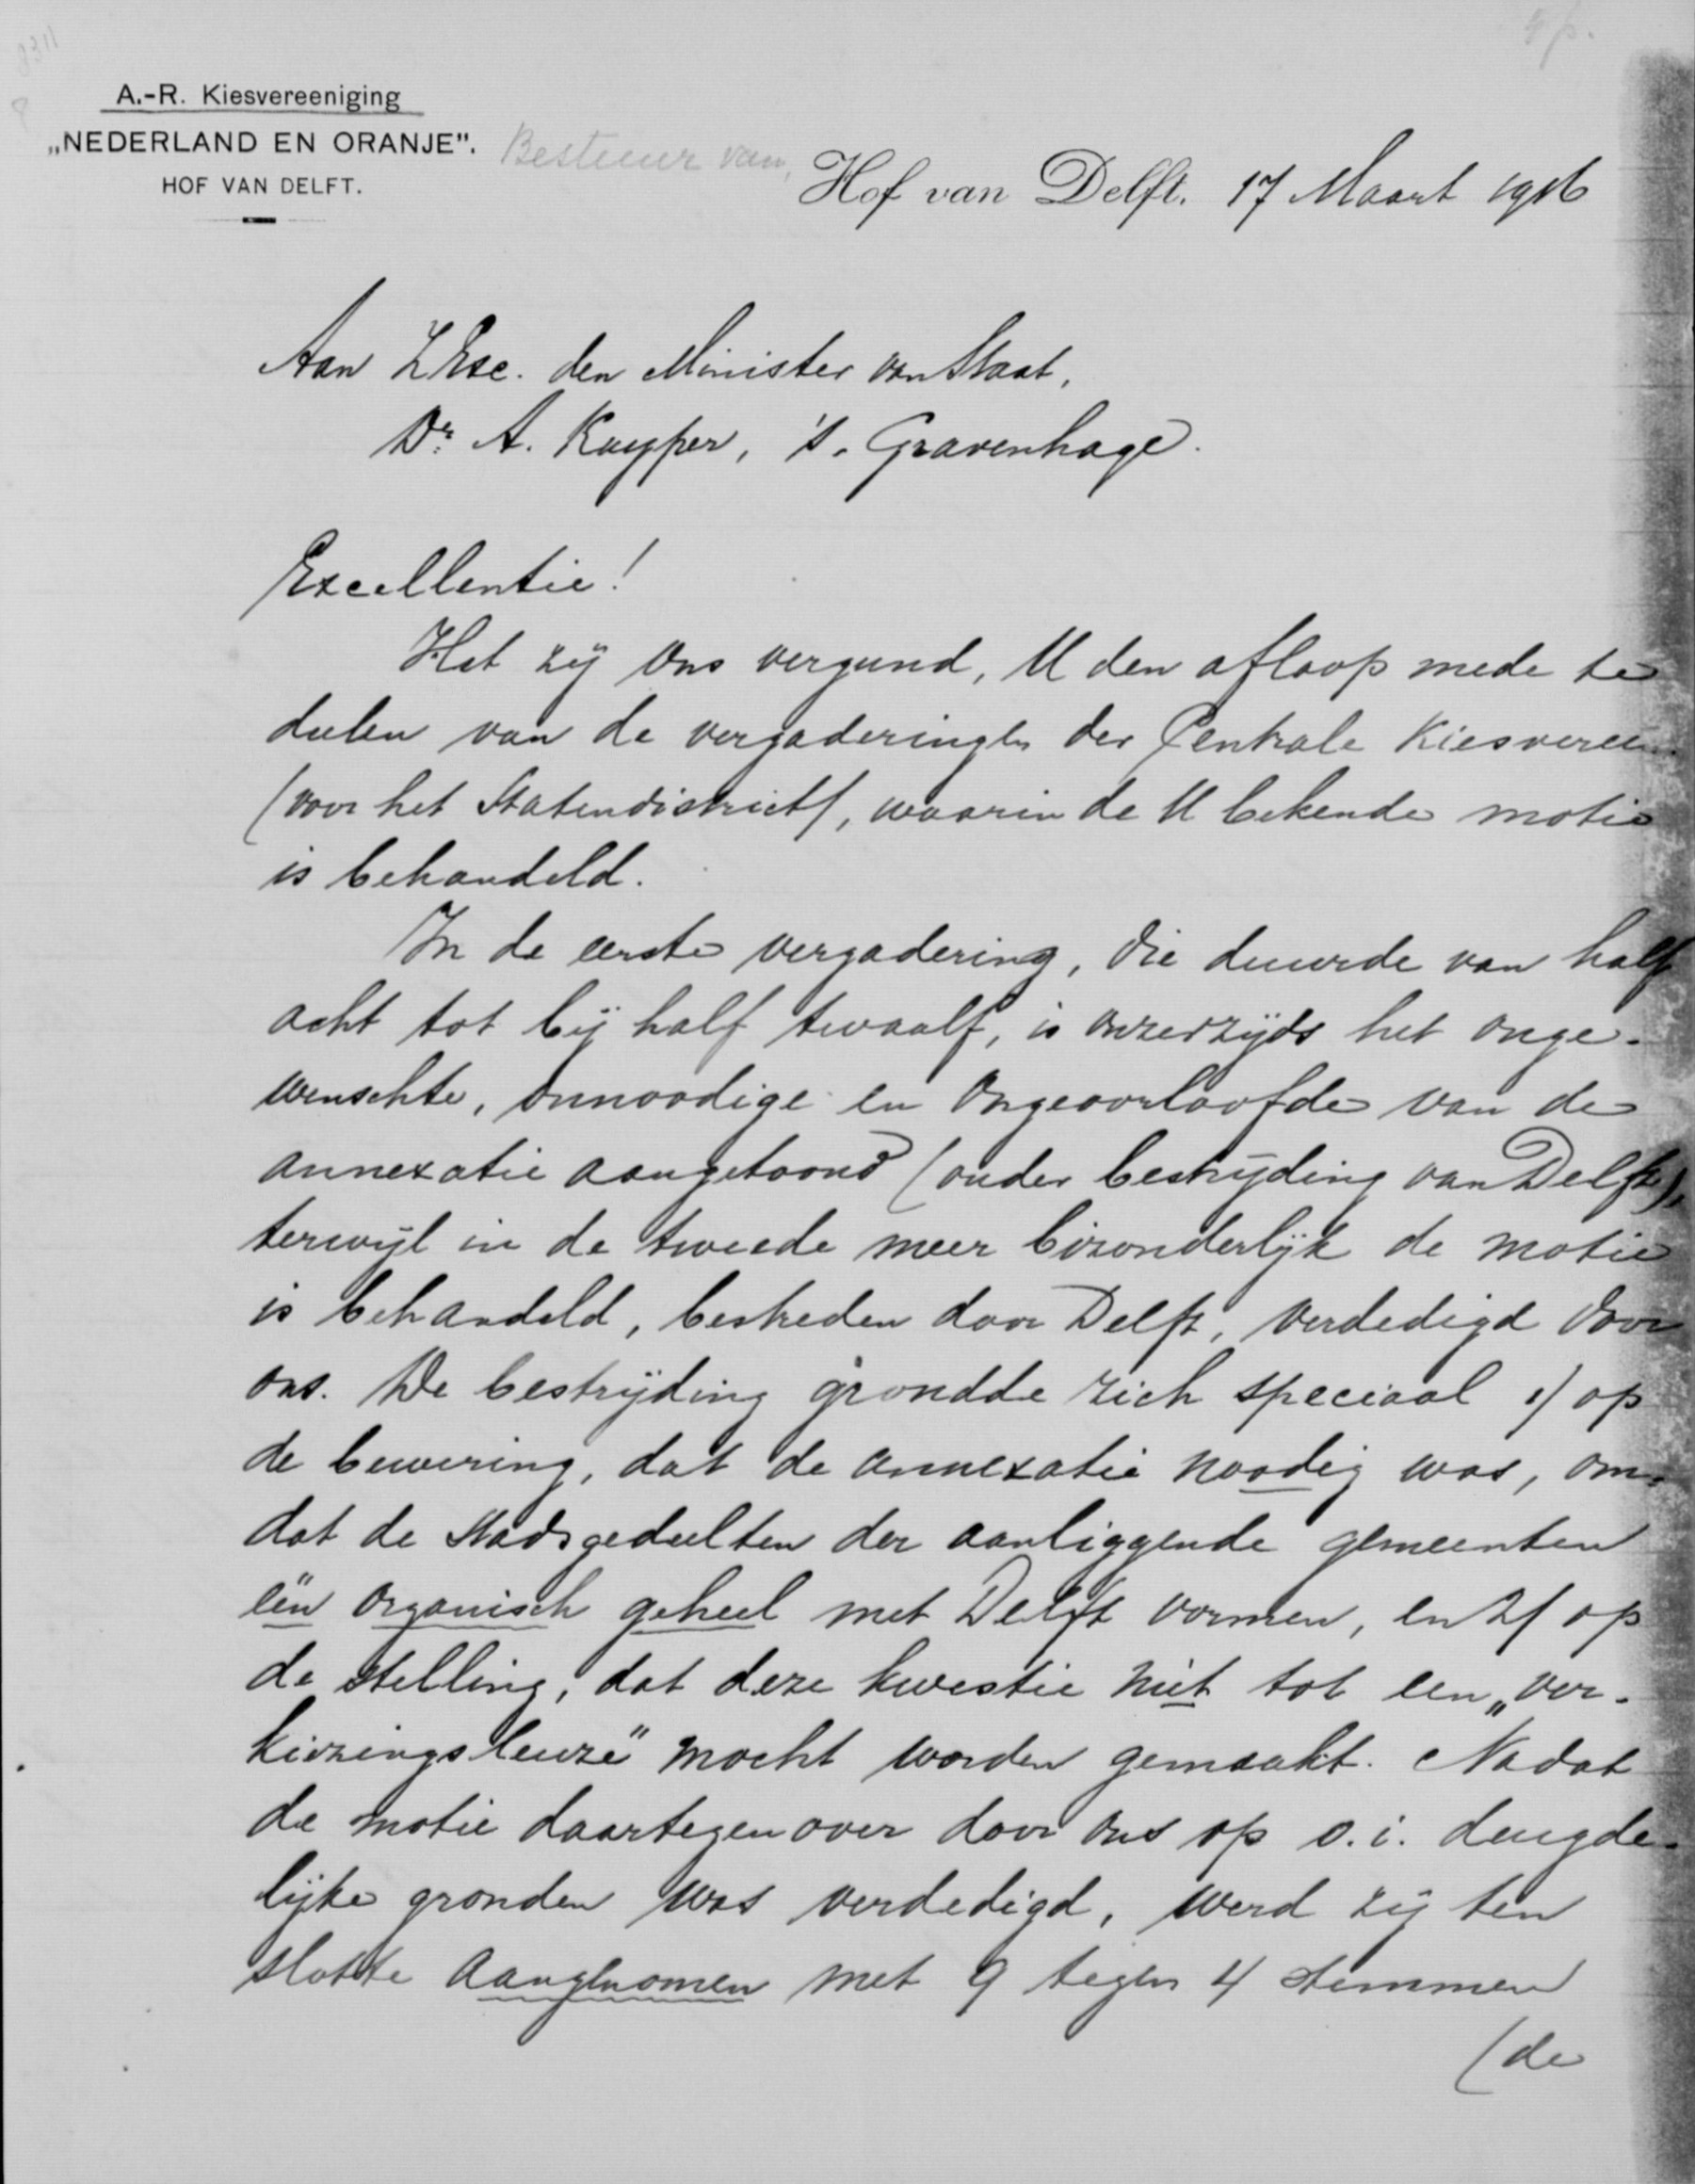 A.-R. Kiesvereeniging
„NEDERLAND EN ORANJE".
HOF VAN DELFT.
Bestuur van,
Hof van Delft. 17 Maart 1916
Aan Z Exc. den Minister van Staat,
Dr. A. Kuyper, 's. Gravenhage.
Excellentie!
Het zij ons vergund, U den afloop mede te
deelen van de vergaderingen der Centrale Kiesvereen.
(voor het Statendistrict), waarin de U bekende motie
is behandeld.
In de eerste vergadering, die duurde van half
acht tot bij half twaalf, is onzerzijds het onge-
wenschte, onnoodige en ongeoorloofde van de
annexatie aangetoond (onder bestrijding van Delft),
terwijl in de tweede meer bizonderlijk de motie
is behandeld, bestreden door Delft, verdedigd door
ons. De bestrijding grondde zich speciaal 1) op
de bewering, dat de annexatie noodig was, om-
dat de Stadsgedeelten der aanliggende gemeenten
één organisch geheel met Delft vormen, en 2) op
de stelling, dat deze kwestie niet tot een „ver-
kiezingsleuze" mocht worden gemaakt. Nadat
de motie daartegenover door ons op o.i. deugde-
lijke gronden was verdedigd, werd zij ten
slotte aangenomen met 9 tegen 4 stemmen
(de